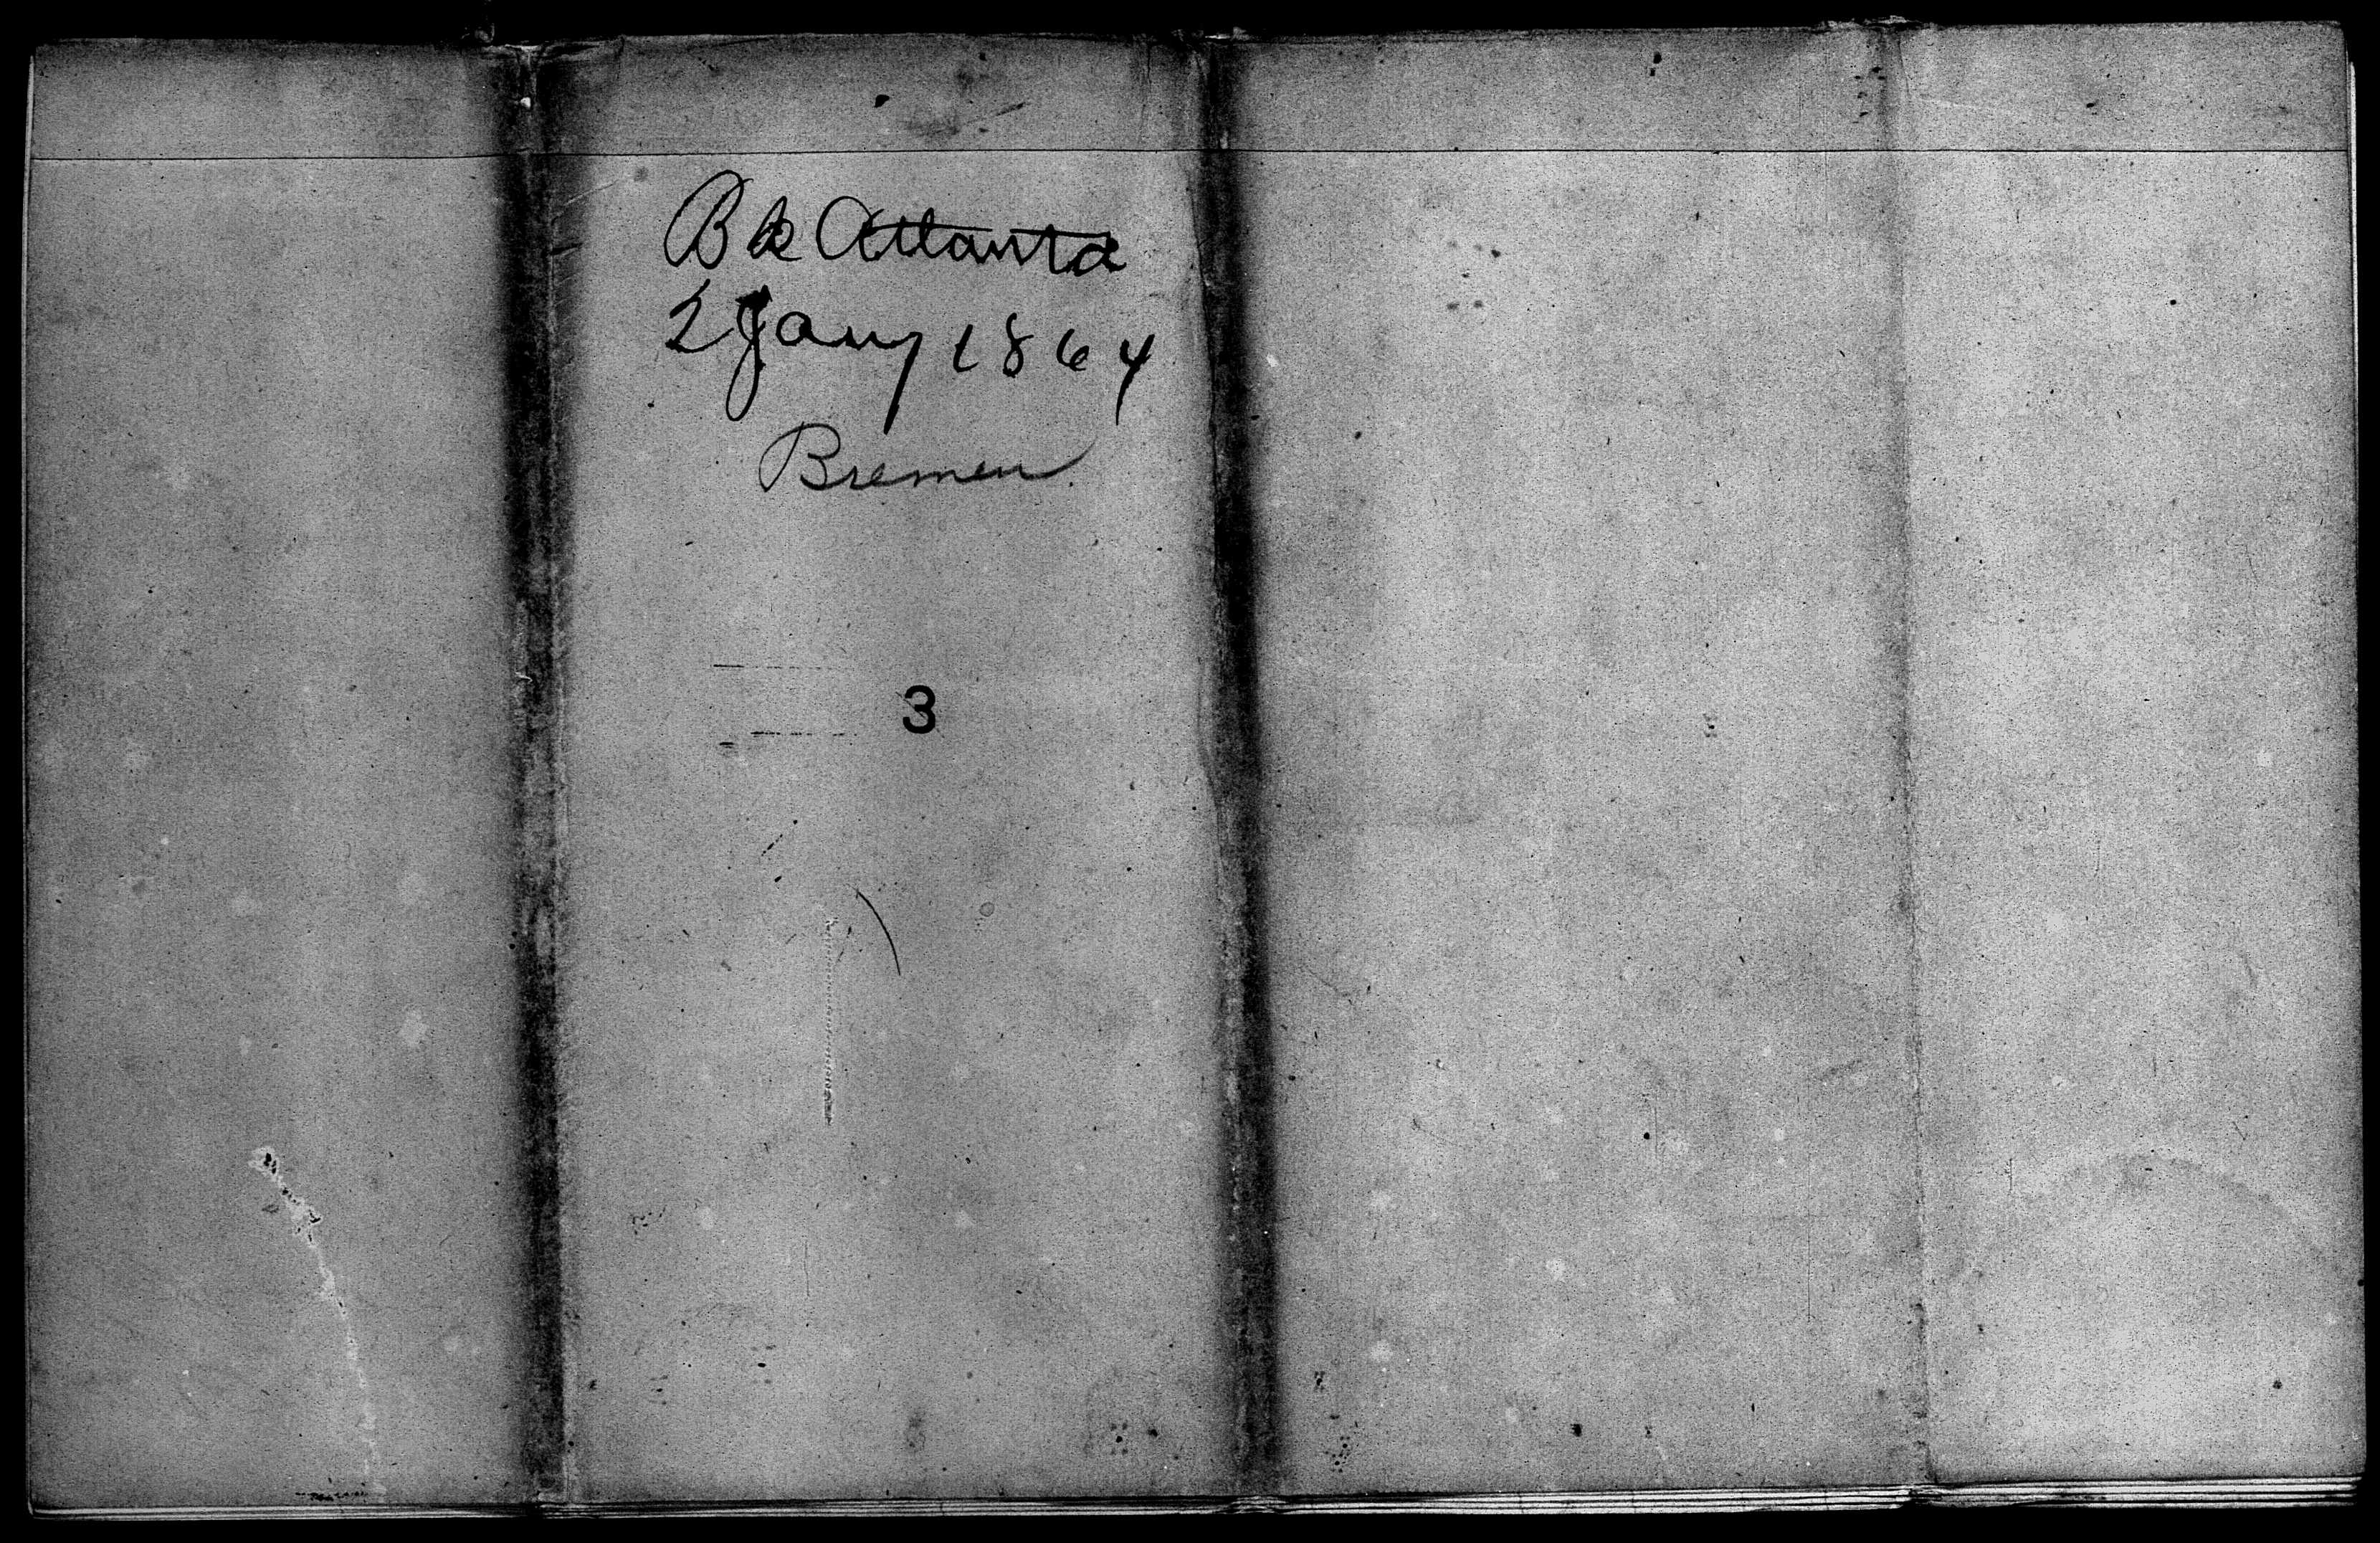 Bk Atlanta
2 Jany 1864
Bremen
3